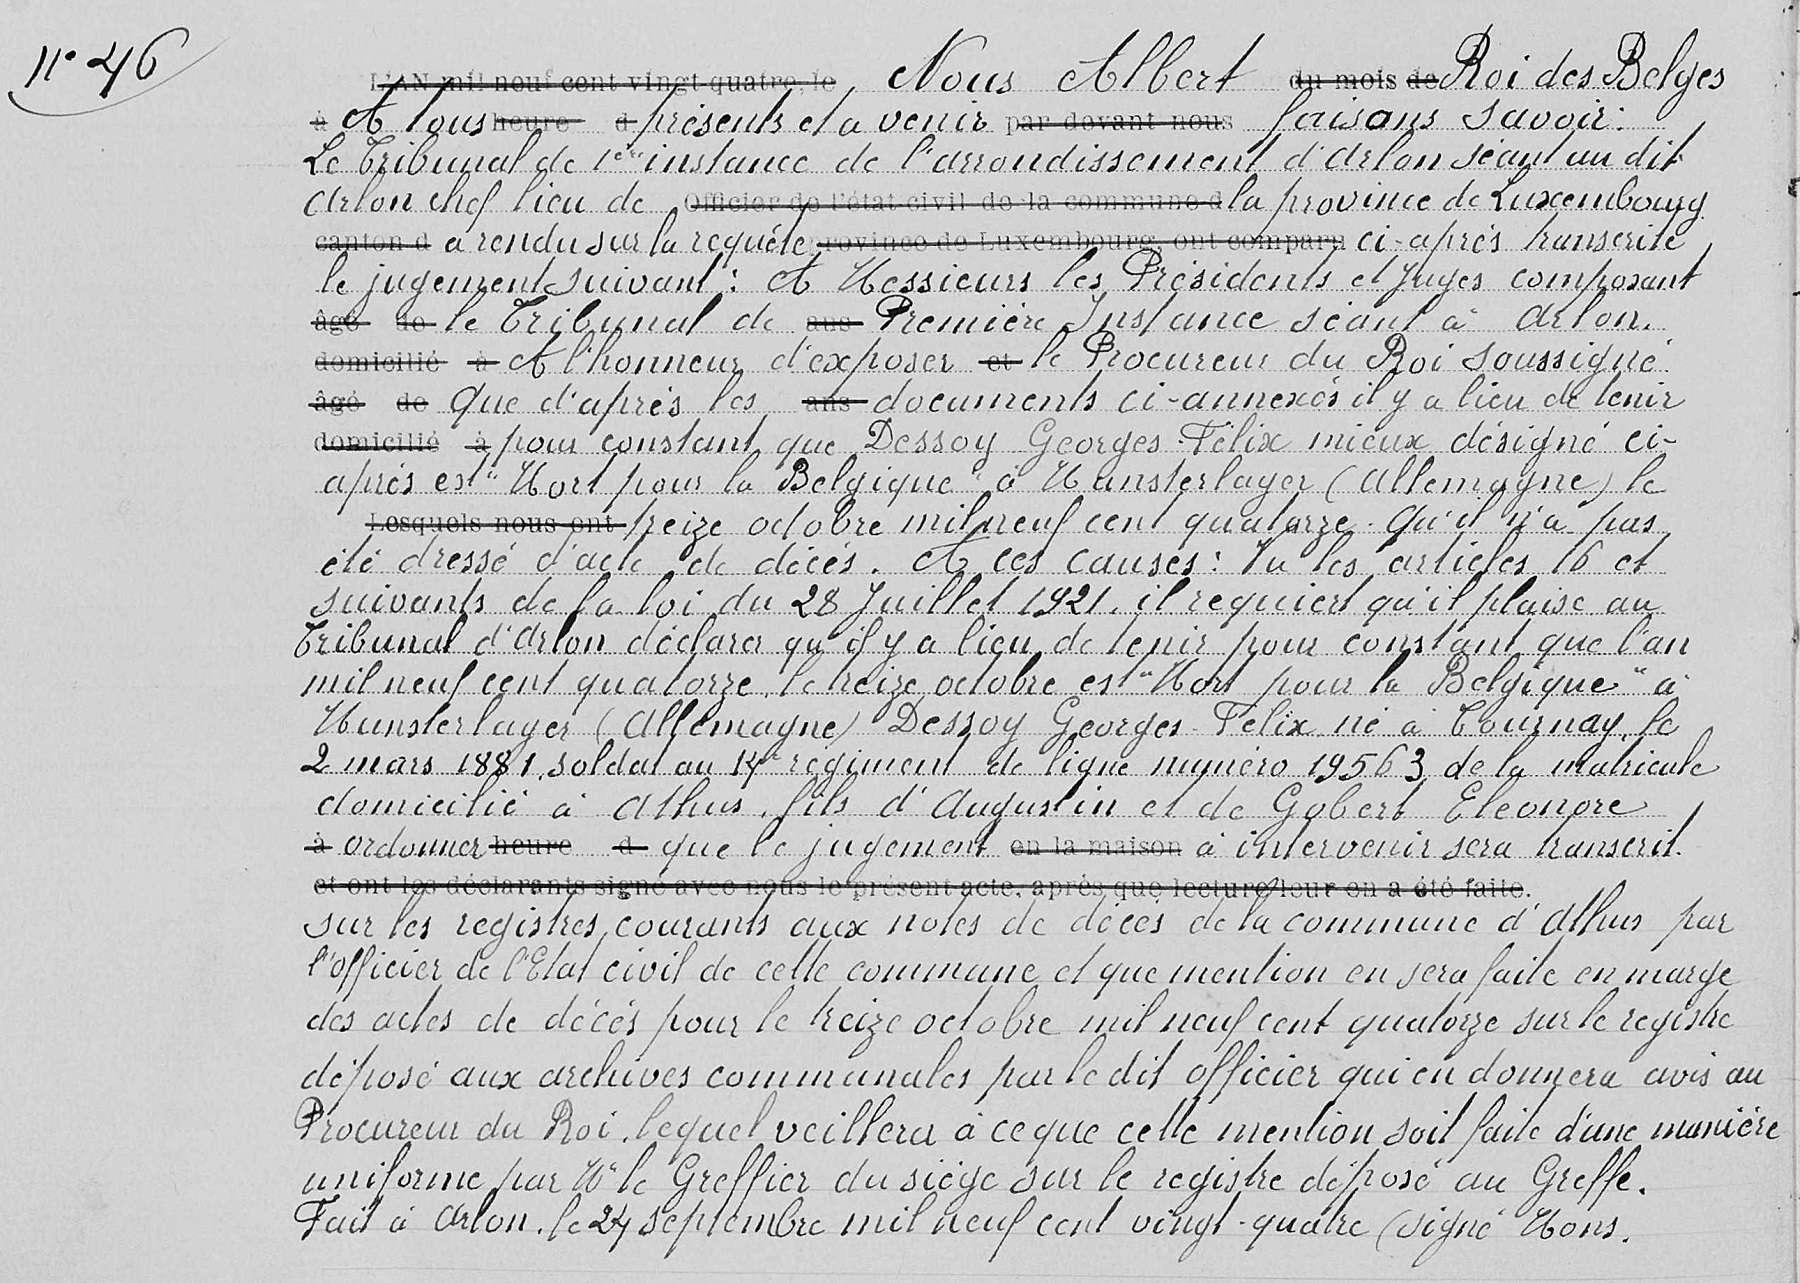 N° 46
L'AN mil neuf cent vingt-quatre, le Nous Albert du mois de Roi des Belges
à A tous heure d présents et a venir par devant nous faisons savoir:
Le Tribunal de 1ère instance de l'arrondissement d'Arlon séant au dit
Arlon chef lieu de Officier de l'état civil de la commune d la province de Luxembourg
canton d a rendu sur la requête province de Luxembourg, ont comparu ci-après transcrite
le jugement suivant: A Messieurs les Présidents et Juges composant
âgé de le Tribunal de ans Première Instance séant à Arlon.
domicilié à A l'honneur d'exposer et le Procureur du Roi soussigné
âgé de Que d'après les ans documents ci-annexés il y a lieu de tenir
domicilié à pour constant que Dessoy Georges-Félix mieux désigné ci-
après est "Mort pour la Belgique" à Munsterlager (Allemagne) le
Lesquels nous ont treize octobre mil neuf cent quatorze. Qu'il n'a pas
été dressé d'acte de décès. A ces causes: Vu les articles 16 et
suivants de la loi du 28 Juillet 1921. il requiert qu'il plaise au
Tribunal d'Arlon déclarer qu'il y a lieu de tenir pour constant que l'an
mil neuf cent quatorze, le treize octobre est "Mort pour la Belgique" à
Munsterlager (Allemagne) Dessoy Georges-Félix né à Tournay, le
2 mars 1881, soldat au 14e régiment de ligne numéro 19563 de la matricule
domicilié à Athus, fils d'Augustin et de Gobert Eléonore
à ordonner heure d que le jugement en la maison à intervenir sera transcrit
et ont les déclarants signé avec nous le présent acte, après que lecture leur en a été faite.
sur les registres courants aux notes de décès de la commune d'Athus par
l'officier de l'Etat civil de cette commune et que mention en sera faite en marge
des actes de décès pour le treize octobre mil neuf cent quatorze sur le registre
déposé aux archives communales par le dit officier qui en donnera avis au
Procureur du Roi, lequel veillera à ce que cette mention soit faite d'une manière
uniforme par Mr le Greffier du siège sur le registre déposé au Greffe.
Fait à Arlon, le 24 septembre mil neuf cent vingt-quatre (signé Hons.